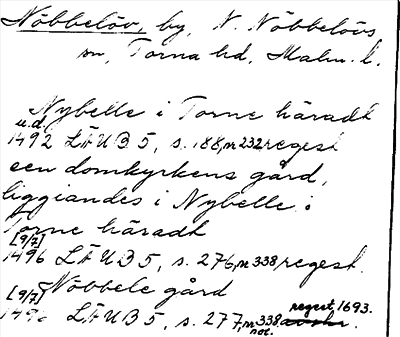 Nöbbelöv, by, N. Nöbbelövs
sn, Torna hd, Malm. l.
Nybelle i Torne häradt
u.d.
1492 LÄUB 5, s. 188, nr 232 regest
een domkyrkens gård,
liggiandes i Nybelle i
Torne häradt
[9/7]
1496 LÄUB 5, s. 276, nr 338, regest.
Nöbbele gård
[9/7] regest 1693.
1496 LÄUB 5, s. 277, nr 338, avskr.
not.